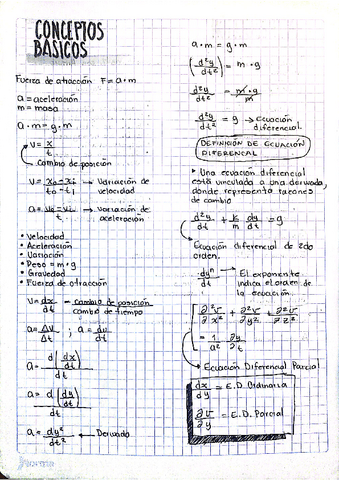 CONCEPTOS
BÁSICOS
Fuerza de atracción F = a·m
a = aceleración
m = masa
a·m = g·m
v = x/t
→ cambio de posición
v = (x₀ - x₁)/(t₀ - t₁) → Variación de velocidad
t → variación de aceleración
• Velocidad
• Aceleración
• Variación
• Peso = m·g
• Gravedad
• Fuerza de atracción
v = dx/dt → cambio de posición / cambio de tiempo
a = Δv/Δt ; a = dv/dt
a = d(dx/dt)/dt
a = d(dy/dt)/dt
a = dy²/dt² ← Derivada
a·m = g·m
(d²y/dt²) = m·g
d²y/dt² = m·g/m
d²y/dt² = g → Ecuación diferencial
DEFINICIÓN DE ECUACIÓN
DIFERENCIAL
▸ Una ecuación diferencial
está vinculada a una derivada,
donde representa razones
de cambio
d²y/dt + k/m dy/dt = g
Ecuación diferencial de 2do
orden.
dyⁿ/dt → El exponente
indica el orden de
la ecuación.
∂²v/∂x² + ∂²v/∂y² + ∂²v/∂z²
= 1/a² ∂y/∂t
→ Ecuación Diferencial Parcial
dx/dy = E.D. Ordinaria
∂v/∂y = E.D. Parcial